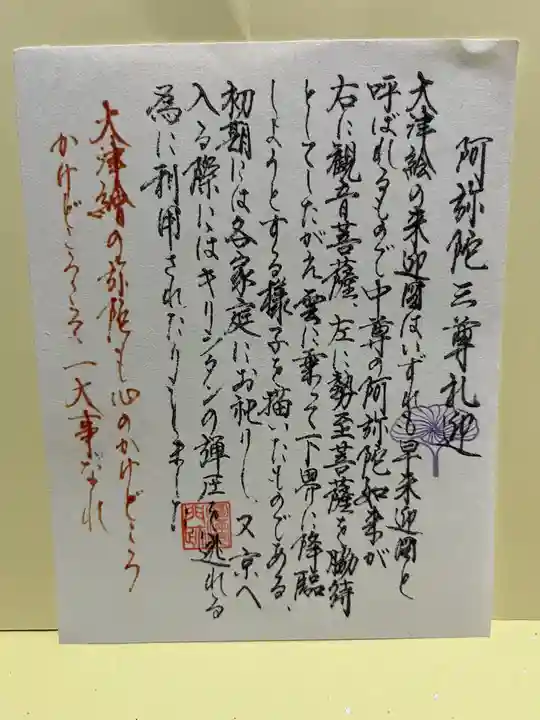 阿弥陀三尊礼迎
大津絵の来迎図はいずれも早来迎図と
呼ばれるもので中尊の阿弥陀如来が
右に観音菩薩、左に勢至菩薩を脇待
としてしたがえ雲に乗って下界に降臨
しようとする様子を描いたものである、
初期には各家庭にお祀りし、又京へ
入る際にはキリシタンの弾圧を逃れる
為に利用されたりもしました
大津繪の弥陀も心のかけどころ
かけどころこそ、一大事なれ